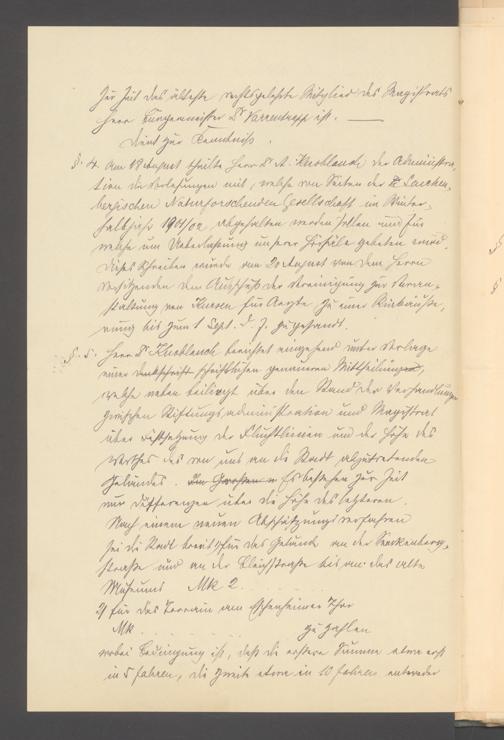 Zur Zeit das älteste rechtsgelehrte Mitglied des Magistrats
Herr Bürgermeister Dr Varrentrapp ist. —
Dient zur Kenntniss.
§. 4. Am 18 August theilte Herr Dr A. Knoblauch der Administra-
tion die Vorlesungen mit, welche von Seiten der Sencken-
bergischen Naturforschenden Gesellschaft im Winter-
halbjahr 1901/02 abgehalten werden sollen und für
welche um Ueberlassung unserer Hörsäle gebeten wird.
Dieses Schreiben wurde am 20 August von dem Herrn
Vorsitzenden dem Ausschuss der Vereinigung zur Veran-
staltung von Kursen für Aerzte zu einer Rückäusse-
rung bis zum 1 Sept. d. J. zugesandt.
§. 5. Herr Dr Knoblauch berichtet eingehend unter Vorlage
einer Denkschrift schriftlichen genaueren Mittheilungen,
welche neben beiliegt über den Stand der Verhandlungen
zwischen Stiftungsadministration und Magistrat
über Festsetzung der Fluchtlinien und der Höhe des
Werthes des von uns an die Stadt abzutretenden
Geländes. Im Ganzen Es bestehen zur Zeit
nur Differenzen über die Höhe des letzteren.
Nach einem neuen Abschätzungsverfahren
sei die Stadt bereit 1) für das Gelände an der Senckenberg-
strasse und an der Bleichstrasse bis an das alte
Museums Mk 2 . . . . . . .
2) für das Terrain am Eschenheimer Thor
Mk . . . . . . . . . . zu zahlen
wobei Bedingung ist, dass die erstere Summe etwa erst
in 5 Jahren, die zweite etwa in 10 Jahren, entweder